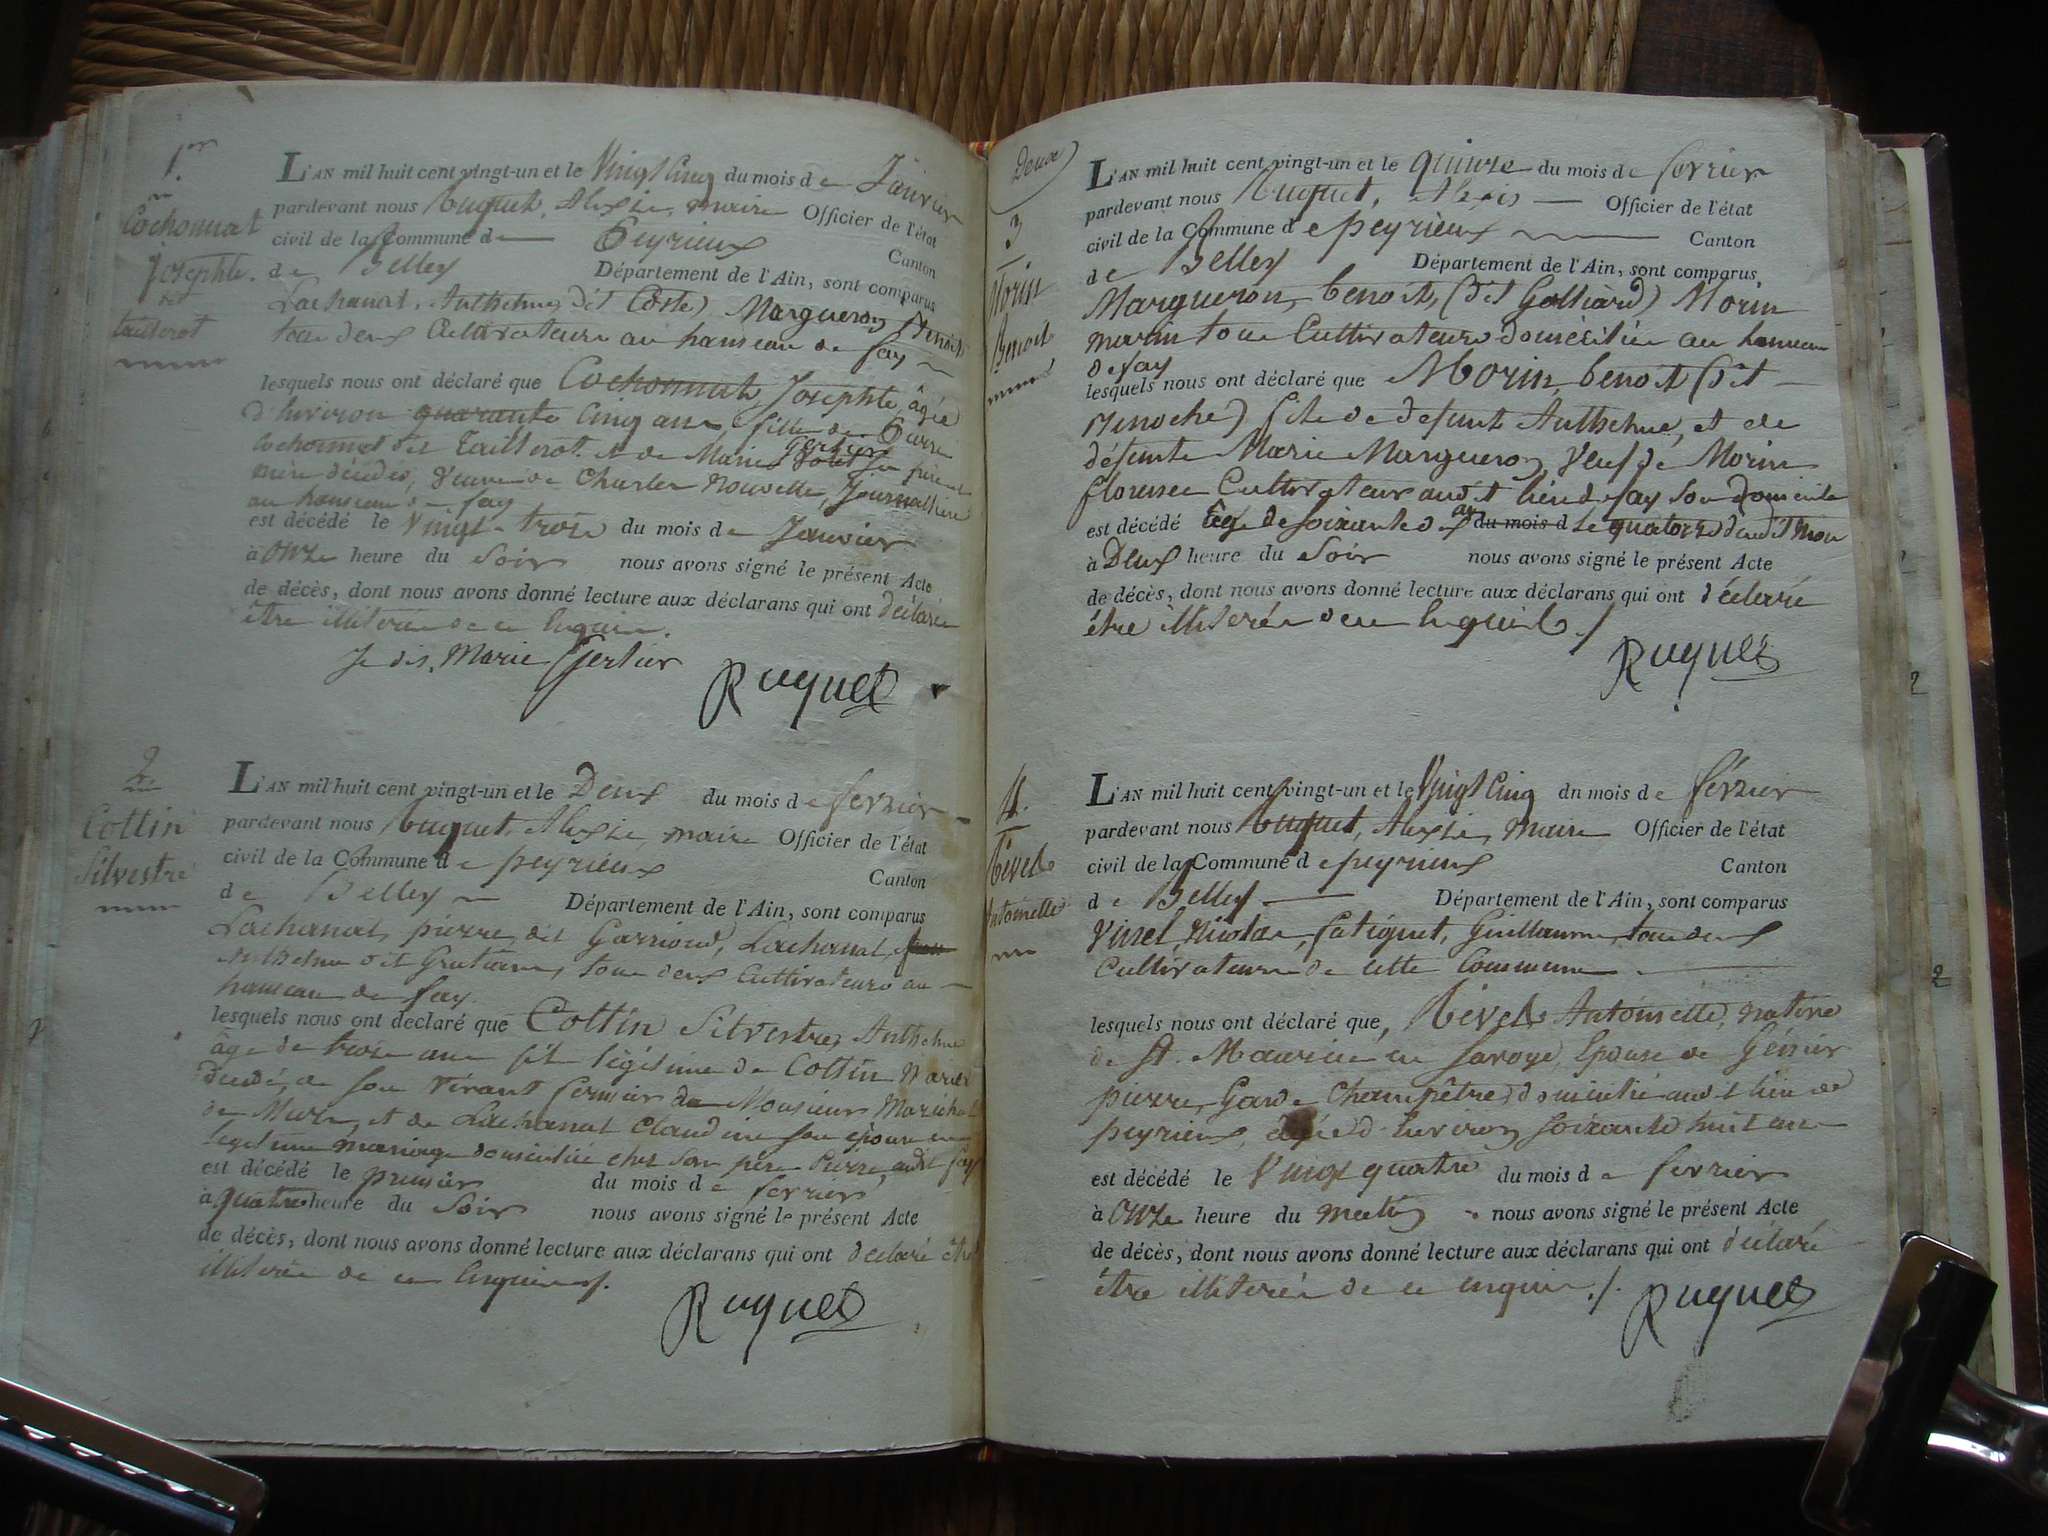 1.er
Cochonnat
Josephte.
dit
taillerot
L'AN mil huit cent vingt-un et le Vingt Cinq du mois de Janvier
pardevant nous Ruquet, Alexis, maire Officier de l'état
civil de la Commune de Peyrieux Canton
de Belley Département de l'Ain, sont comparus
Lachanat, Anthelme, dit Coste) Margueron, Benoit
tous deux Cultivateurs au hameau de fay
lesquels nous ont déclaré que Cochonnat, Josephte, âgée
d'Environ quarante Cinq ans fille de Pierre
Cochonnat dit Taillerot et de Marie Gertier
mère décédés, Veuve de Charles Nouvelle, Journallière
au hameau de fay
est décédé le Vingt-trois du mois de Janvier
à onze heure du Soir nous avons signé le présent Acte
de décès, dont nous avons donné lecture aux déclarans qui ont déclaré
être illiterés de ce Enquis.
Je dis, Marie Gertier
Ruquet
2.
Cottin
Silvestre
L'AN mil huit cent vingt-un et le Deux du mois de fevrier
pardevant nous Ruquet, Alexis, maire Officier de l'état
civil de la Commune de peyrieux Canton
de Belley Département de l'Ain, sont comparus
Lachanat, pierre, dit Garnioud, Lachanat,
Anthelme dit Gratiane, tous deux Cultivateurs au
hameau de fay.
lesquels nous ont déclaré que Cottin Silvestre, Anthelme
âge de trois ans fils légitime de Cottin
décédé, de son vivant fermier de Monsieur Maréchal
de Murs, et de Lachanat Claudine son épouse en
legitime mariage domicilié chez son père Pierre, audit fay
est décédé le premier du mois de fevrier
à quatre heure du Soir nous avons signé le présent Acte
de décès, dont nous avons donné lecture aux déclarans qui ont déclaré être
illiterés de ce Enquis ./.
Ruquet
Deux
3
Morin
Benoit
L'AN mil huit cent vingt-un et le quinze du mois de fevrier
pardevant nous Ruquet, Alexis Officier de l'état
civil de la Commune de peyrieux Canton
de Belley Département de l'Ain, sont comparus,
Margueron, benoit, (dit Golliard) Morin
marin tous Cultivateurs domiciliés au hameau
de fay
lesquels nous ont déclaré que Morin, benoit (dit
Benoche) fils de defunt Anthelme, et de
défunte Marie Margueron, Veuf de Morin
florence Cultivateur audit lieu de fay son domicile
est décédé âge de soixante dix ans du mois d le quatorze dudit mois
à Deux heure du Soir nous avons signé le présent Acte
de décès, dont nous avons donné lecture aux déclarans qui ont déclaré
être illiterés de ce Enquis ./
Ruquet
4.
Révet
Antoinette
L'AN mil huit cent vingt-un et le Vingt Cinq du mois de février
pardevant nous Ruquet, Alexis, maire Officier de l'état
civil de la Commune de peyrieux Canton
de Belley Département de l'Ain, sont comparus
Vinel, Nicolas, fatiguet, Guillaume, tous deux
Cultivateurs de cette Commune
lesquels nous ont déclaré que, Révet Antoinette, native
de St. Maurice en Savoye, Epouse de Génin
pierre, Garde Champêtre, domicilié audit lieu de
peyrieux, agée d'Environ soixante huit ans
est décédé le Vingt quatre du mois de fevrier
à onze heure du matin nous avons signé le présent Acte
de décès, dont nous avons donné lecture aux déclarans qui ont déclaré
être illiterés de ce enquis ./.
Ruquet
2
2